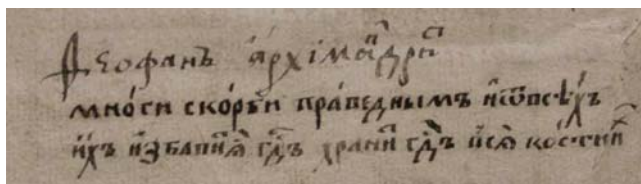 Ѳеофанъ а҆рхімаⷩ҇дриⷮ
мно́ги ско́рби пра́веднымъ и҆ ѿ всѣ́хъ
и҆́хъ и҆збавиⷮ ѧ҆̀ гдⷭ҇ь храниⷮ гдⷭ҇ь всѧ̀ ко́сти иⷯ